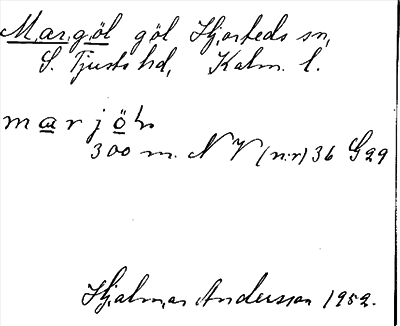 Margöl göl Hjorteds sn,
S. Tjusts hd, Kalm. l.
marjöl
300 m. NV (nr) 36 G29
Hjalmar Andersson 1952.